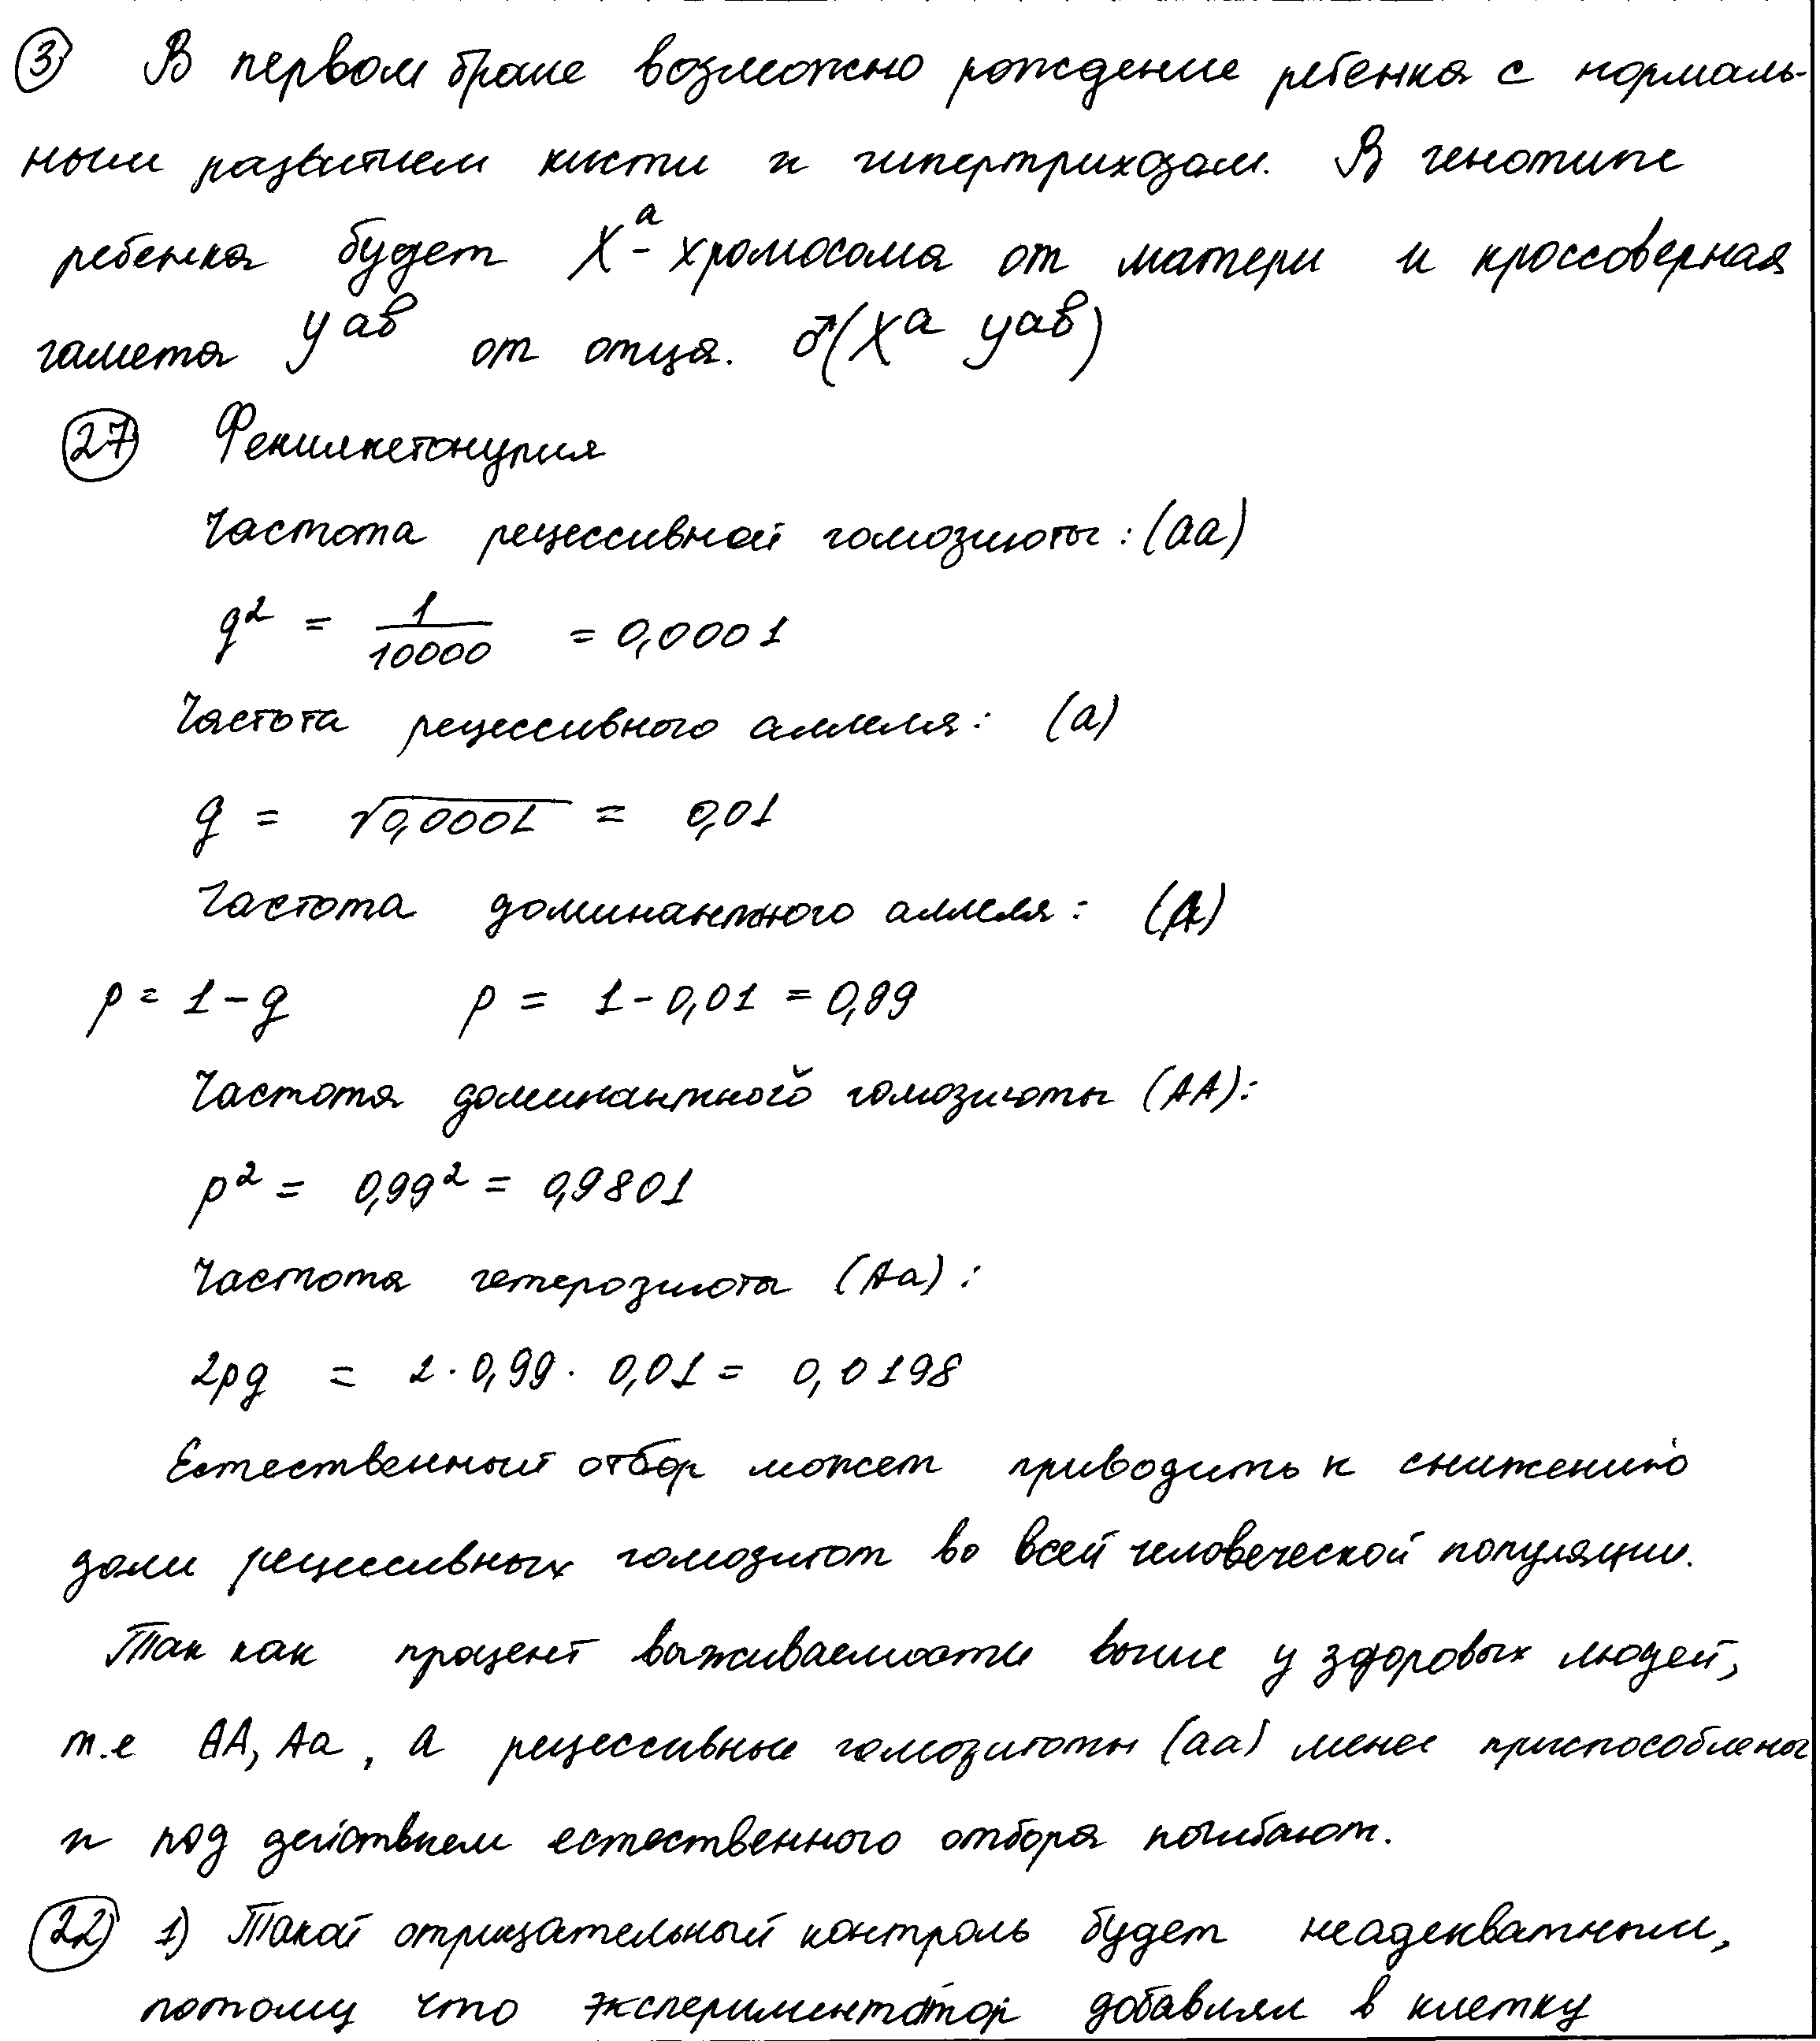 ③ В первом браке возможно рождение ребенка с нормаль-
ным развитием кисти и гипертрихозом. В генотипе
ребенка будет Xᵃ-хромосома от матери и кроссоверная
гамета yᵃᵇ от отца. ♂(Xᵃ yᵃᵇ)
㉗ Фенилкетонурия
Частота рецессивной гомозиготы: (aa)
q² = 1/10000 = 0,0001
Частота рецессивного аллеля: (a)
q = √0,0001 = 0,01
Частота доминантного аллеля: (A)
p = 1 - q p = 1 - 0,01 = 0,99
Частота доминантного гомозиготы (AA):
p² = 0,99² = 0,9801
Частота гетерозиготы (Aa):
2pq = 2 · 0,99 · 0,01 = 0,0198
Естественный отбор может приводить к снижению
доли рецессивных гомозигот во всей человеческой популяции.
Так как процент выживаемости выше у здоровых людей,
т.е AA, Aa, а рецессивные гомозиготы (aa) менее приспособлены
и под действием естественного отбора погибают.
㉒ 1) Такой отрицательный контроль будет неадекватным,
потому что экспериментатор добавлял в клетку